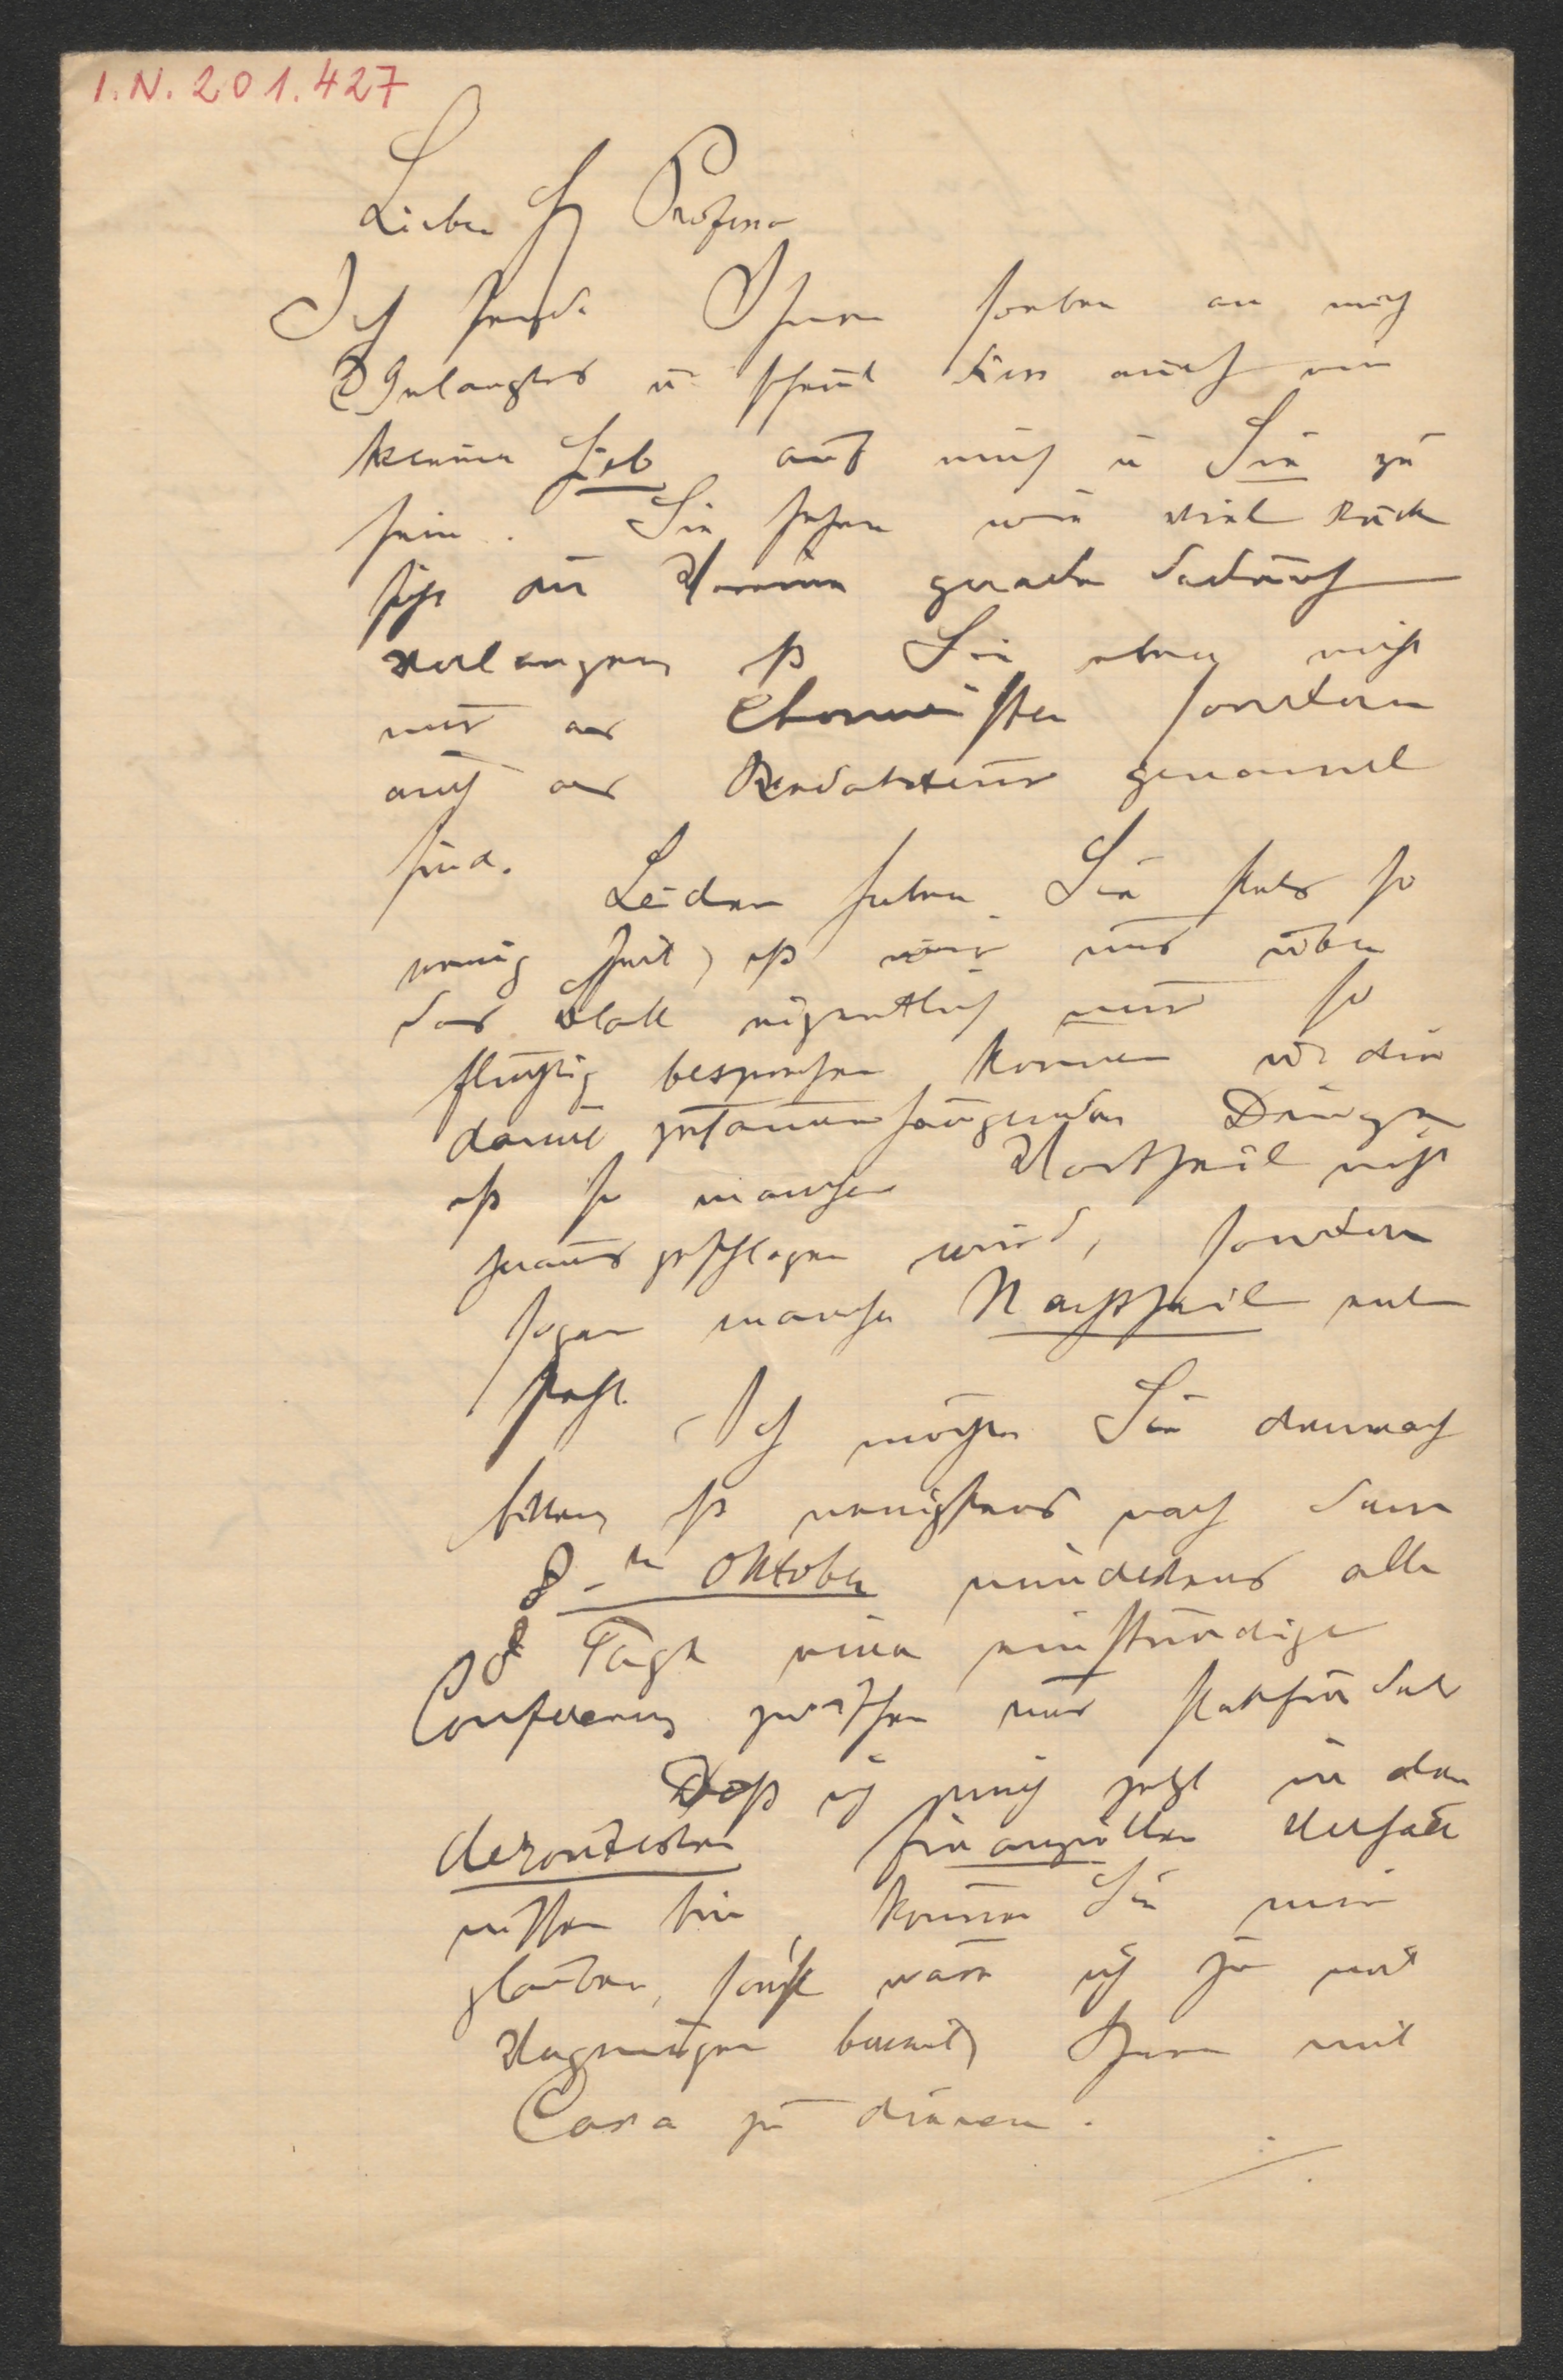 I.N. 201.427
Lieber H Professor
Ich sende Ihnen soeben an mich
Gelangtes u scheint dies auch ein
kleiner Hieb auf mich u Sie zu
sein. Sie sehen wie viel Rück
sicht die Vereine gerade dadurch
verlangen daß Sie eben nicht
nur als Chormeister sondern
auch als Redakteur genannt
sind. Leider haben Sie stets so
wenig Zeit, daß wir uns über
das Blatt eigentlich nur so
flüchtig besprechen können u die
damit zusammenhängenden Dinge
daß so mancher Vortheil nicht
herausgeschlagen wird, sondern
sogar mancher Nachtheil ent
steht. Ich möchte Sie demnach
bitten daß wenigstens nach dem
8-ten Oktober mindestens alle
8 Tage eine einstündige
Conferenz zwischen uns stattfindet
Daß ich mich jetzt in den
deroutesten finanziellen Verhält
nissen bin, können Sie mir
glauben, sonst wäre ich ja mit
Vergnügen bereit, Ihnen mit
Cassa zu dienen.
./.